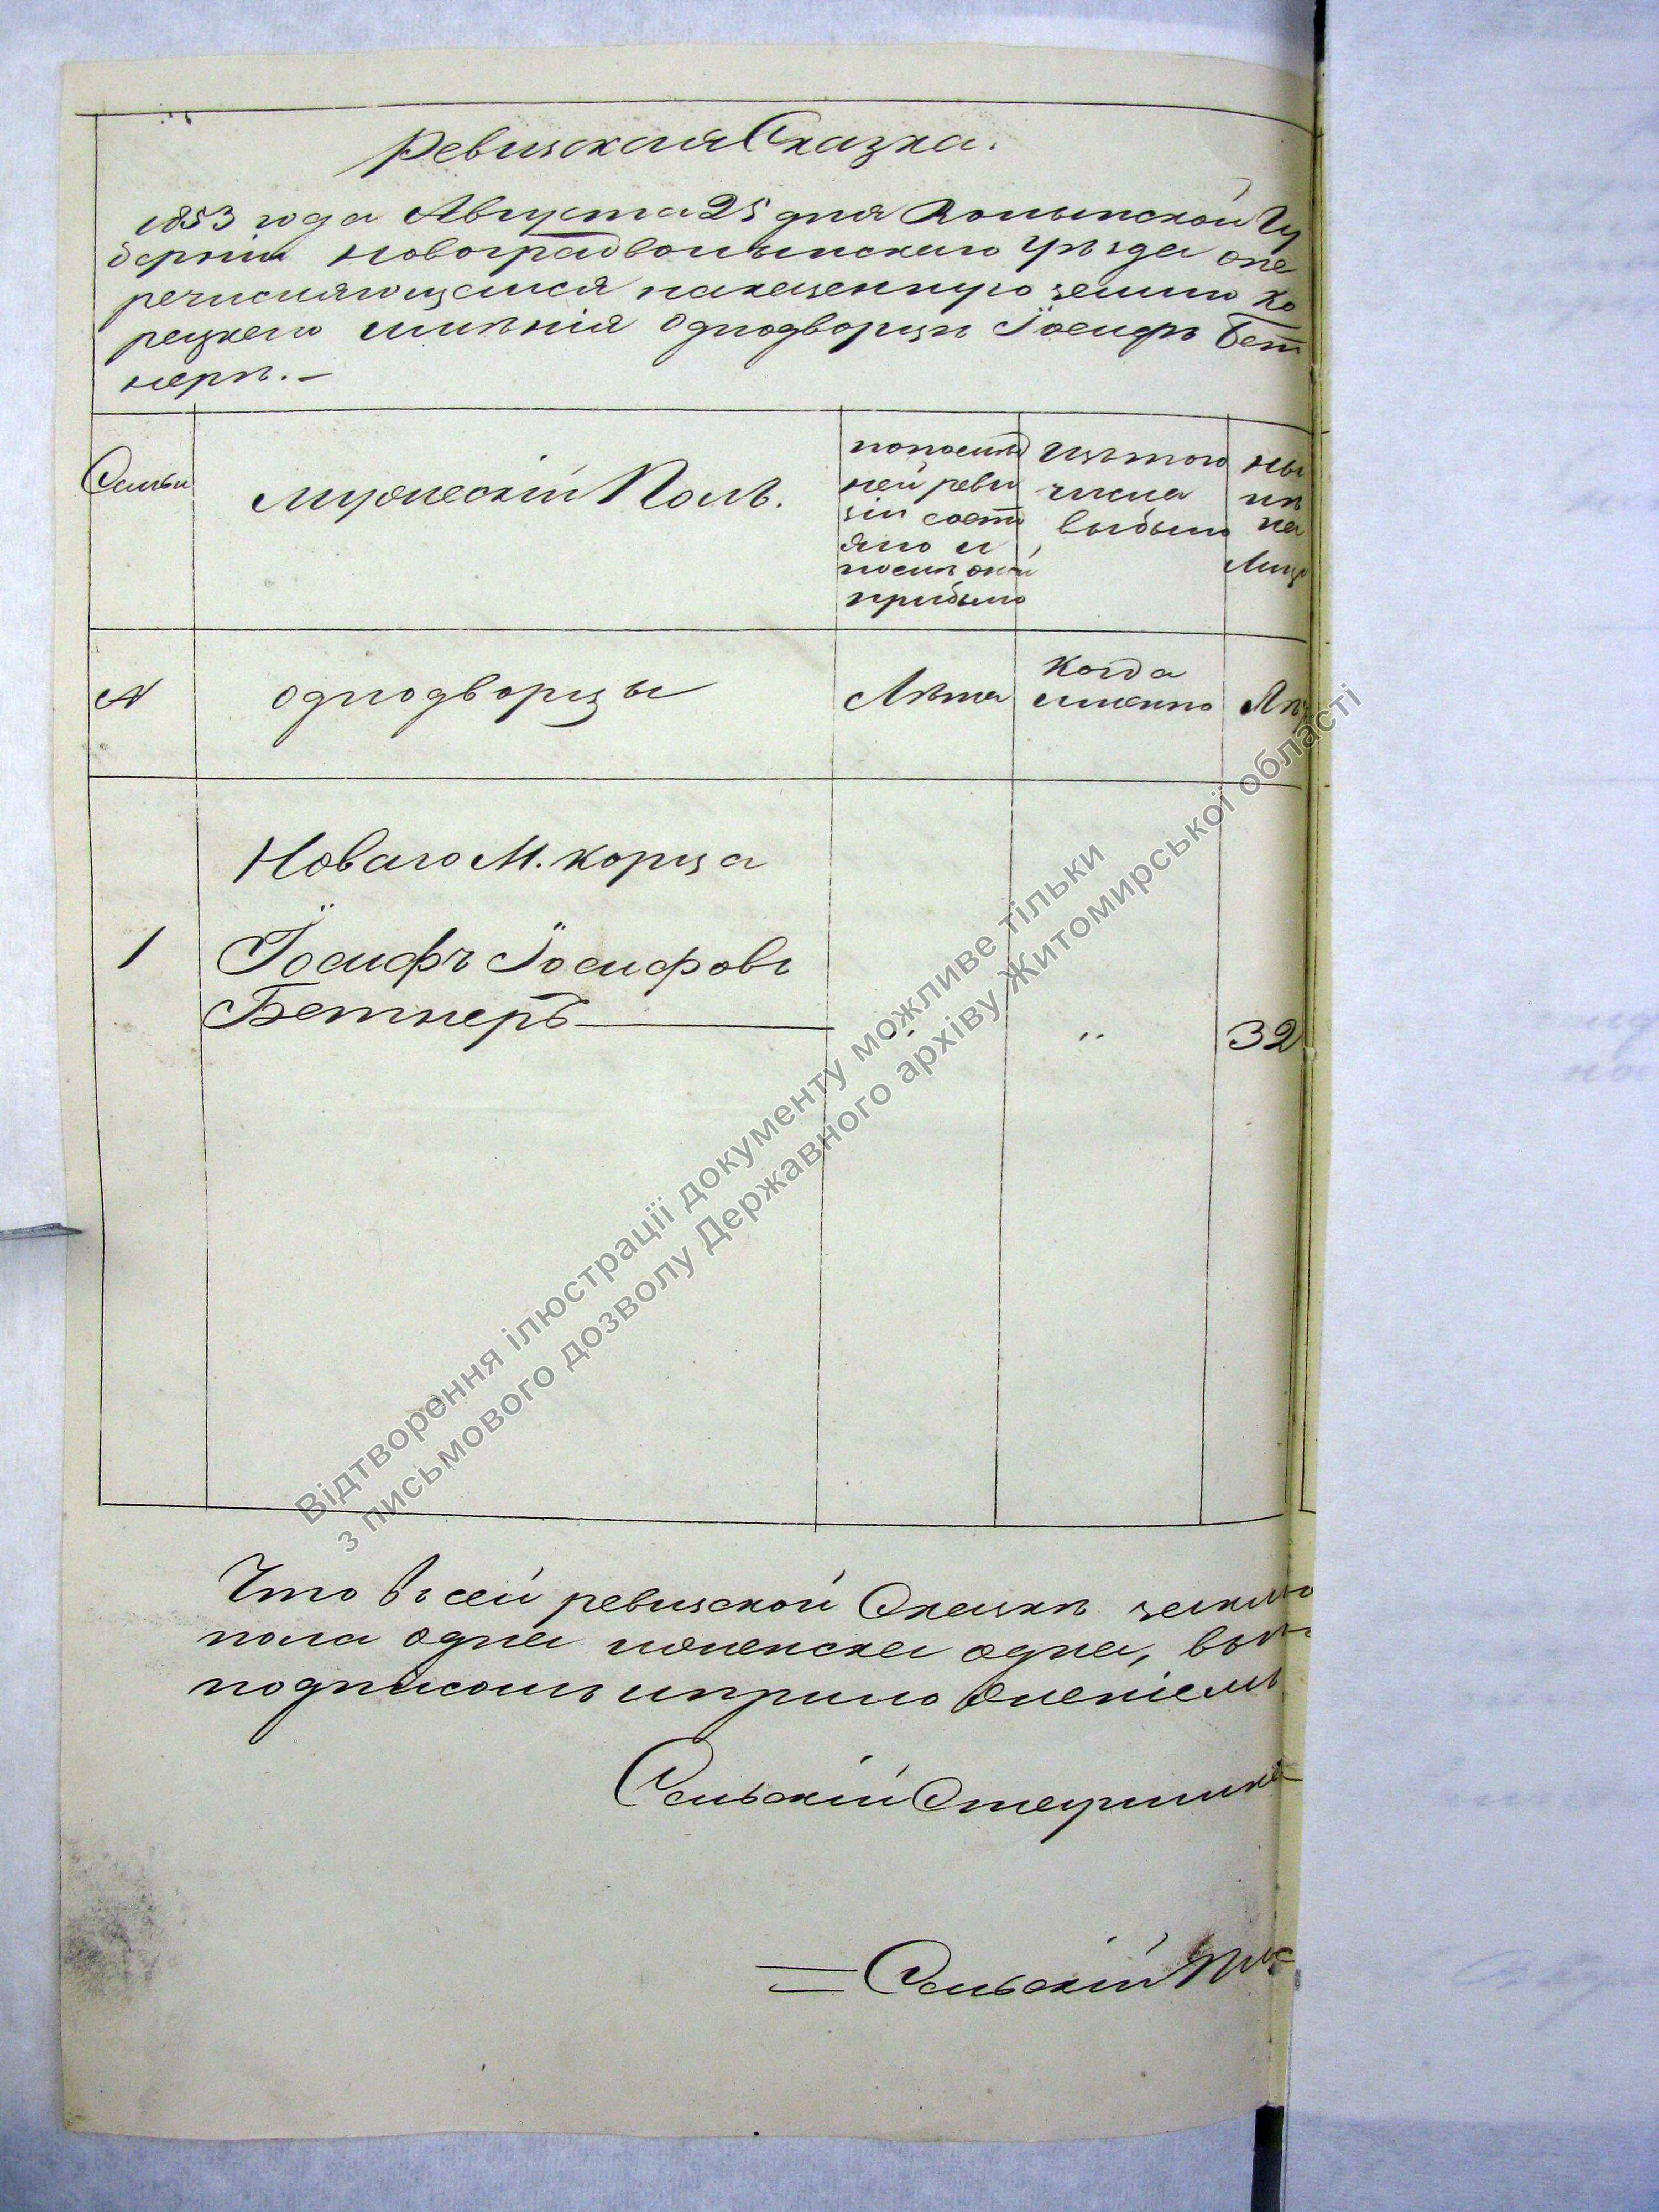 Ревизская Сказка.
1853 года Августа 25 дня Волынской Гу
берніи Новоградволынскаго уѣзда опе
речисляющемся наказенную землю Ко
рецкаго имѣнія Однодворцѣ Іосифѣ Бет
нерѣ. —
Семьи
Мужескій Полъ.
попослѣд
ней реви
зіи состо
яло и
послѣ оной
прибыло
Изътого
числа
выбыло
Ны
нѣ
на
Лицо
№
Однодворцы
Лѣта
Когда
именно
Лѣ
Новаго М. Корца
1
Іосифъ Іосифовъ
Бетнеръ
"
"
32
Что въ сей ревизской Сказкѣ
пола одна женска одна, въ
подписомъ иприло женіемъ
Сельскій Старшина
Сельскій Пис
Відтворення ілюстрації документу можливе тільки
з письмового дозволу Державного архіву Житомирської області